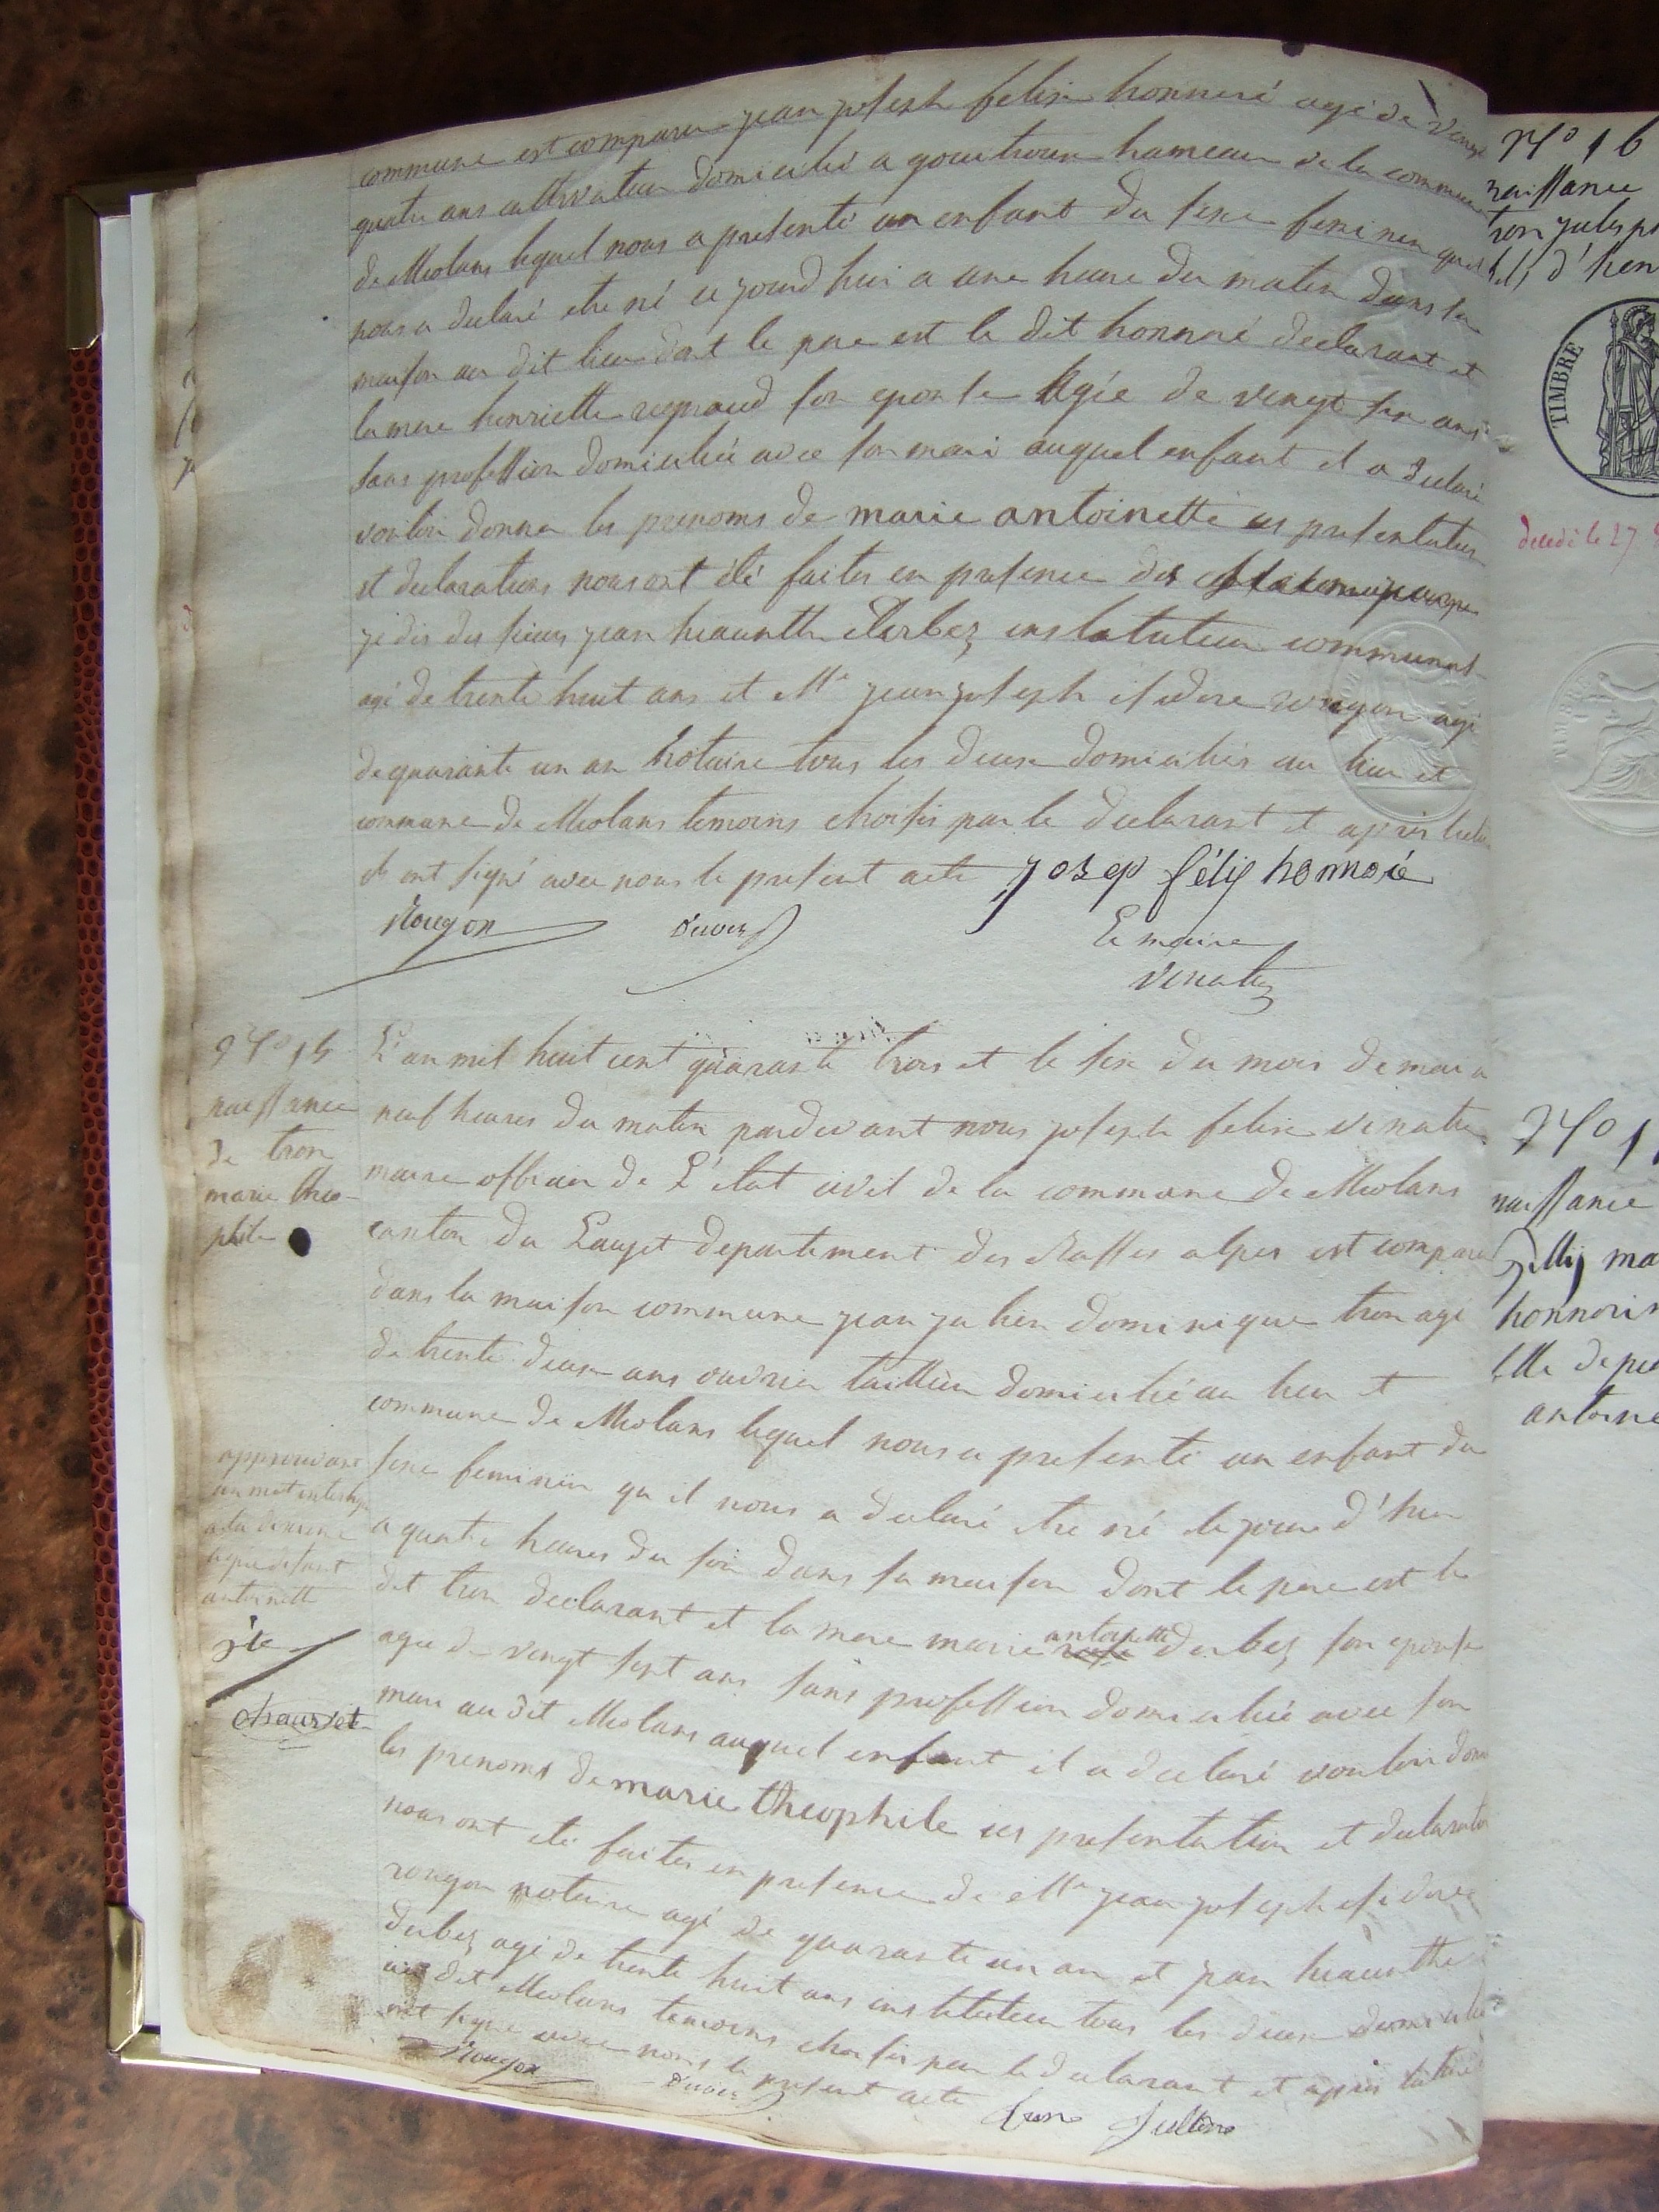 commune est comparu jean joseph felix honnoré agé de vingt
quatre ans cultivateur domicilié a gouitroux hameau de la commune
de Meolans lequel nous a presenté un enfant du sexe feminin quil
nous a declaré etre né ce jourd'hui a une heure du matin dans sa
maison au dit lieu dont le pere est le dit honnoré declarant et
la mere henriette reynaud son epouse agée de vingt six ans
sans profession domiciliée avec son mari auquel enfant il a declaré
vouloir donner les prenoms de marie antoinette ces presentation
et declarations nous ont été faites en presence des
je dis des sieurs jean hiacinthe derbez instituteur communal
agé de trente huit ans et Me jean joseph isidore rougon agé
de quarante un an notaire tous les deux domiciliés au lieu et
commune de Meolans temoins choisis par le declarant et après lecture
ils ont signé avec nous le present acte Josep félix honnoré
Rougon
Le maire
vinatier
N° 15
naissance
de tron
marie theo-
phile
L'an mil huit cent quarante trois et le six du mois de mai a
neuf heures du matin pardevant nous joseph felix vinatier
maire officier de l'état civil de la commune de Meolans
canton du Lauzet departement des Basses alpes est comparu
dans la maison commune jean julien dominique tron agé
de trente deux ans ouvrier tailleur domicilié au lieu et
commune de Meolans lequel nous a presenté un enfant du
sexe feminin qu il nous a declaré etre né le jour d'hier
a quatre heures du soir dans sa maison dont le pere est le
dit tron declarant et la mere marie antoinette derbez son epouse
agée de vingt sept ans sans profession domiciliée avec son
mari au dit Meolans auquel enfant il a declaré vouloir donner
les prenoms de marie theophile ces presentation et declaration
nous ont été faites en presence de Me jean joseph isidore
rougon notaire agé de quarante un an et jean hiacinthe
derbez agé de trente huit ans instituteur tous les deux domiciliés
au dit Meolans temoins choisis par le declarant et après lecture
ont signé avec nous le present acte
Rougon
tron Jullien
approuvant
un mot
antoinette
N° 16
naissance
tron jules
TIMBRE
decedé le 27
N° 1
naissance
ma
honnori
fille de
antoine